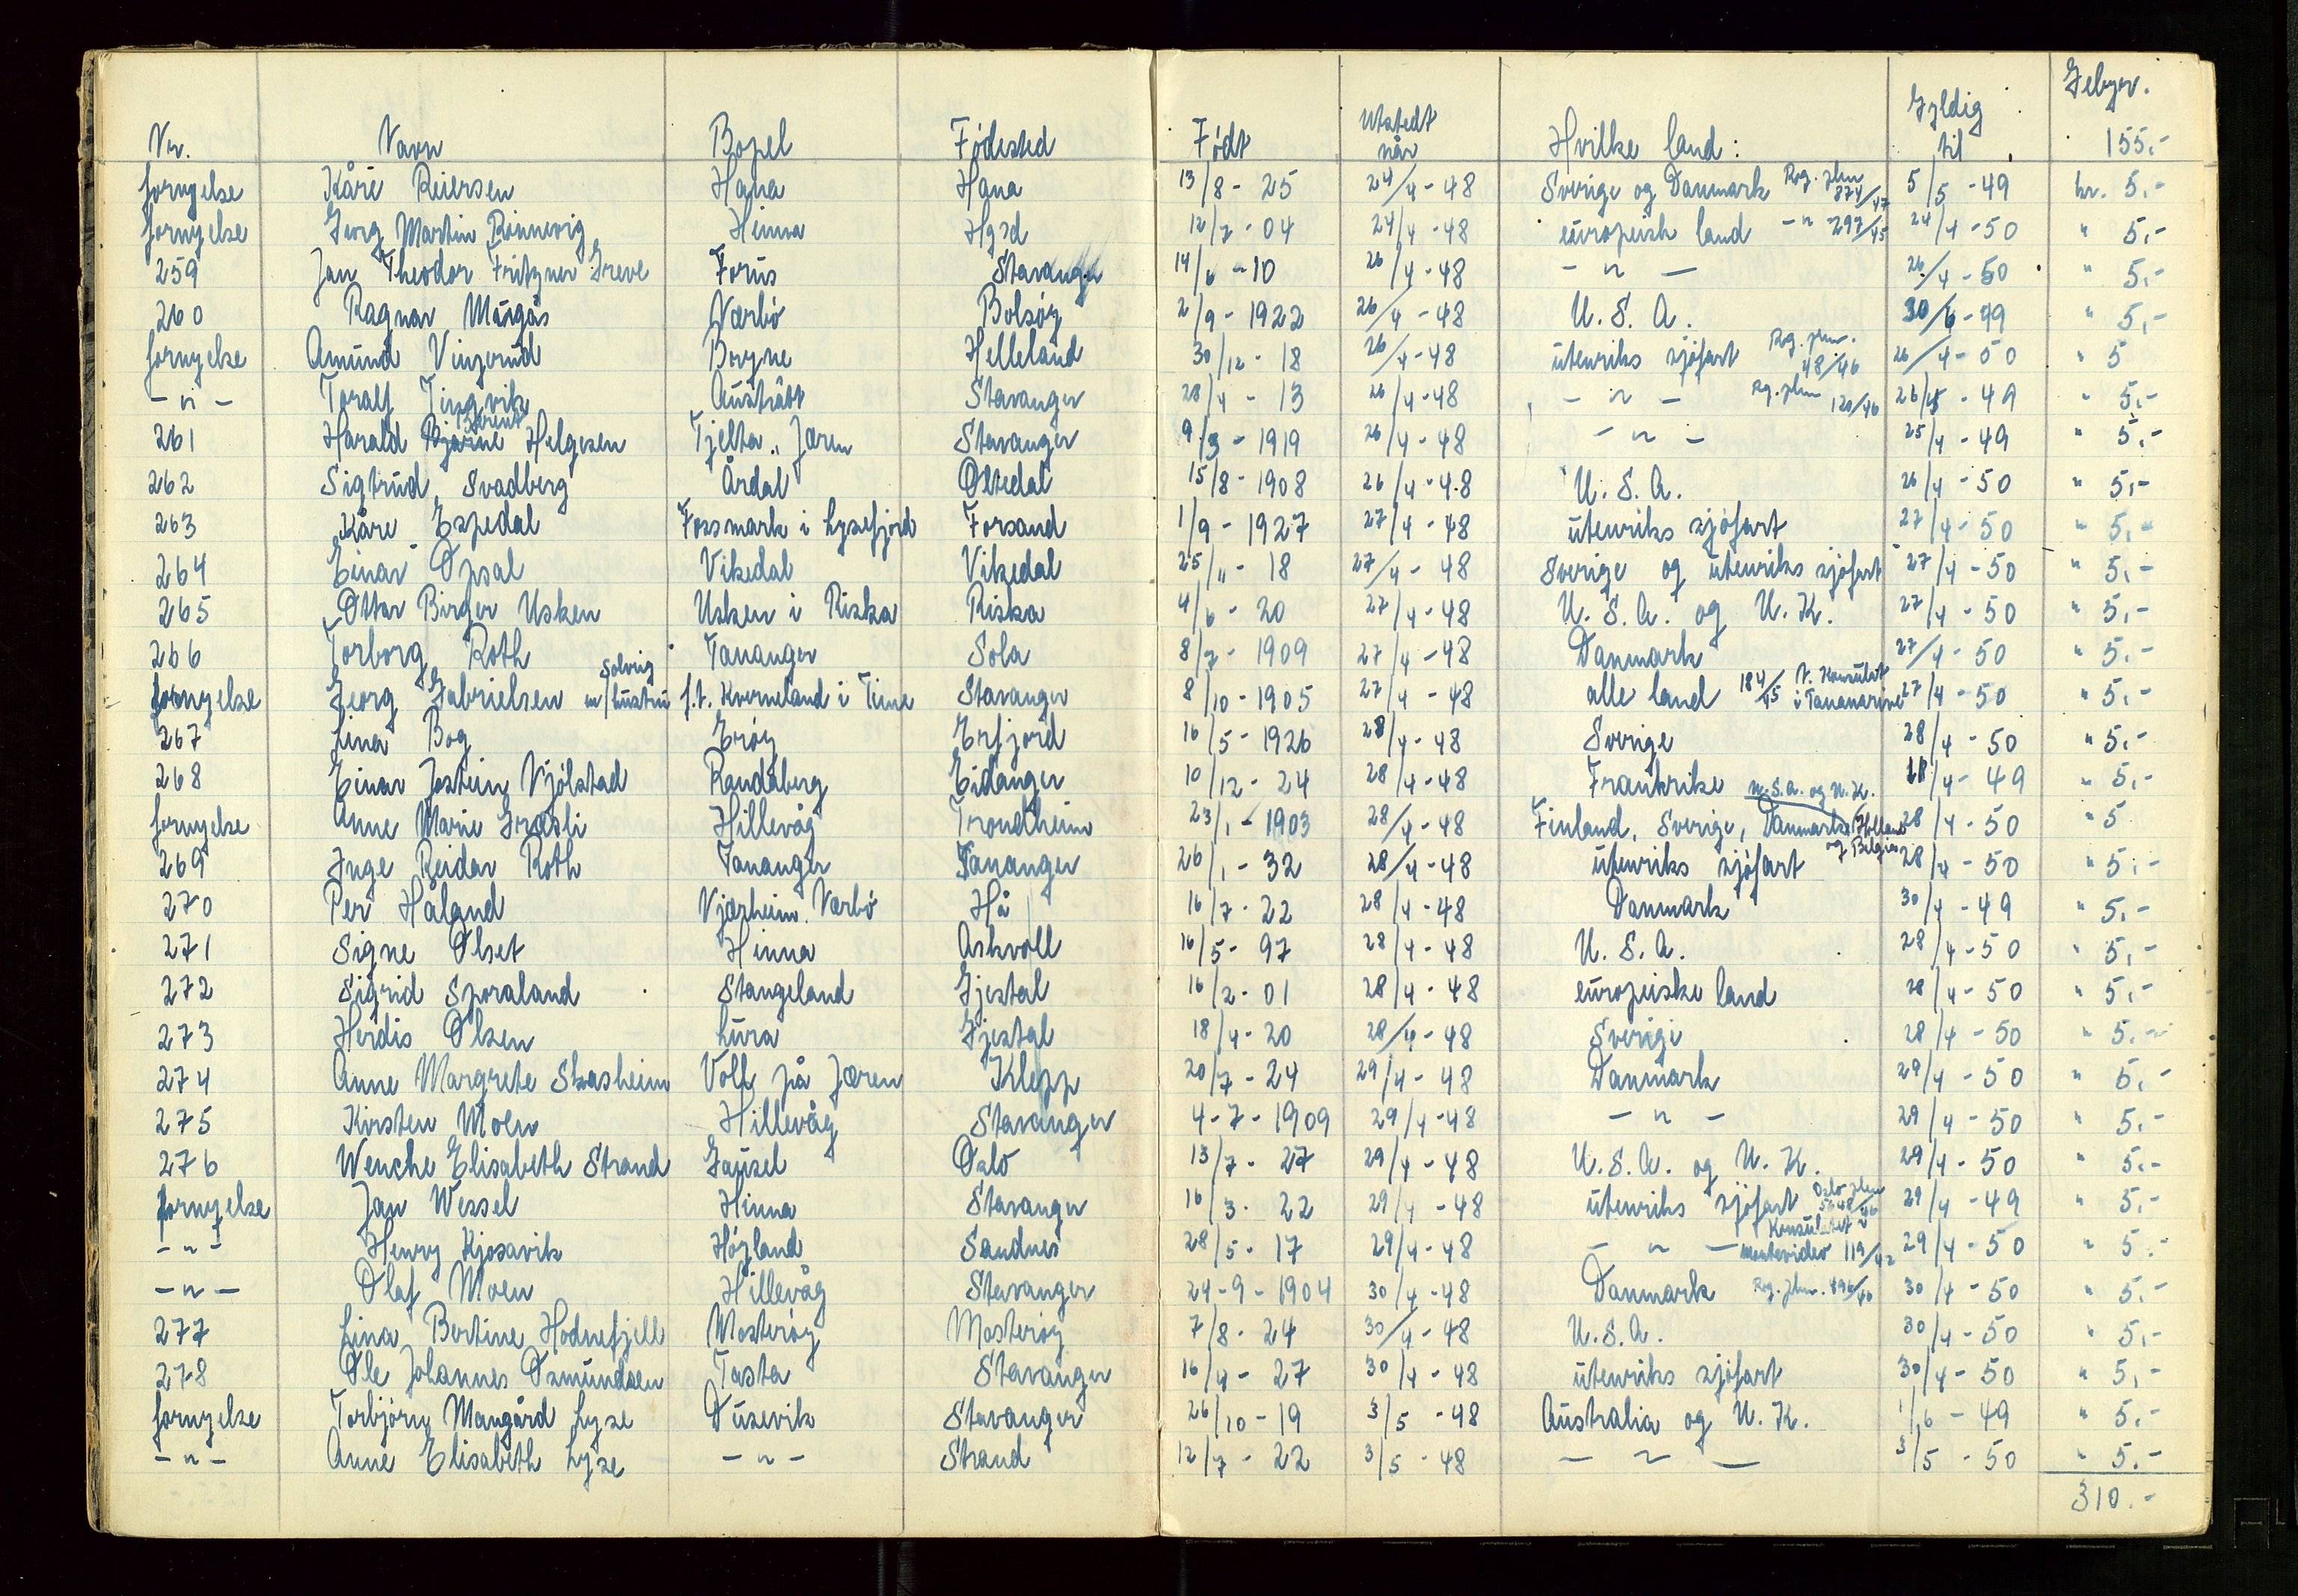 Nr. Navn Bopel Födested Födt Utstedt når Hvilke land: Gyldig til Gebyr. 155,-
fornyelse Kåre Reiersen Hana Hana 13/8 - 25 24/4 - 48 Sverige og Danmark Rog. jhn 874/47 5/5 - 49 kr. 5,-
fornyelse Georg Martin Rönnevig Hinna Hgsd 12/7 - 04 24/4 - 48 europeisk land - " - 297/45 24/4 - 50 " 5,-
259 Jan Theodor Fritzner Greve Forus Stavanger 14/6 - 10 26/4 - 48 - " - 26/4 - 50 " 5,-
260 Ragnar Mårgås Nærbö Bolsöy 2/9 - 1922 26/4 - 48 U.S.A. 30/6 - 49 " 5,-
fornyelse Amund Vinjerud Bryne Helleland 30/12 - 18 26/4 - 48 utenriks sjöfart Rog. jhn. 48/46 26/4 - 50 " 5
- " - Toralf Tingvik Austrått Stavanger 28/4 - 13 26/4 - 48 - " - Rg. jhn 120/46 26/4 - 49 " 5,-
261 Harald Bjarne Berent Helgesen Tjelta, Jæren Stavanger 9/3 - 1919 26/4 - 48 - " - 25/4 - 49 " 5,-
262 Sigtrud Svadberg Årdal Oltedal 15/8 - 1908 26/4 - 48 U.S.A. 26/4 - 50 " 5,-
263 Kåre Espedal Fossmark i Lysefjord Forsand 1/9 - 1927 27/4 - 48 utenriks sjöfart 27/4 - 50 " 5,-
264 Einar Opsal Vikedal Vikedal 25/11 - 18 27/4 - 48 Sverige og utenriks sjöfart 27/4 - 50 " 5,-
265 Ottar Birger Usken Usken i Riska Riska 4/6 - 20 27/4 - 48 U.S.A. og U.K. 27/4 - 50 " 5,-
266 Torborg Roth Tananger Sola 8/7 - 1909 27/4 - 48 Danmark 27/4 - 50 " 5,-
fornyelse Georg Gabrielsen m/hustru Solveig f.t. Kverneland i Time Stavanger 8/10 - 1905 27/4 - 48 alle land 184/45 N. Konsulat i Tananarive 27/4 - 50 " 5,-
267 Lina Bog Eröy Erfjord 16/5 - 1926 28/4 - 48 Sverige 28/4 - 50 " 5,-
268 Einar Jostein Njölstad Randaberg Eidanger 10/12 - 24 28/4 - 48 Frankrike 28/4 - 49 " 5,-
fornyelse Anne Marie Græsli Hillevåg Trondheim 23/1 - 1903 28/4 - 48 Finland, Sverige, Danmark, U.S.A. og U.K. Holland og Belgia 28/4 - 50 " 5
269 Inge Reidar Roth Tananger Tananger 26/1 - 32 28/4 - 48 utenriks sjöfart 28/4 - 50 " 5,-
270 Per Håland Njærheim. Nærbö Hå 16/7 - 22 28/4 - 48 Danmark 30/4 - 49 " 5,-
271 Signe Olset Hinna Askvoll 16/5 - 97 28/4 - 48 U.S.A. 28/4 - 50 " 5,-
272 Sigrid Sporaland Stangeland Gjestal 16/2 - 01 28/4 - 48 europeiske land 28/4 - 50 " 5,-
273 Herdis Olsen Lura Gjestal 18/4 - 20 28/4 - 48 Sverige 28/4 - 50 " 5,-
274 Anne Margrete Skasheim Voll på Jæren Klepp 20/7 - 24 29/4 - 48 Danmark 29/4 - 50 " 5,-
275 Kirsten Moen Hillevåg Stavanger 4 - 7 - 1909 29/4 - 48 - " - 29/4 - 50 " 5,-
276 Wenche Elisabeth Strand Gausel Oslo 13/7 - 27 29/4 - 48 U.S.A. og U.K. 29/4 - 50 " 5,-
fornyelse Jan Wessel Hinna Stavanger 16/3 - 22 29/4 - 48 utenriks sjöfart Oslo jhn 29/4 - 49 " 5,-
- " - Henry Kjosavik Högland Sandnes 28/5 - 17 29/4 - 48 - " - Konsulatet i Montevideo 119/42 29/4 - 50 " 5,-
- " - Olaf Moen Hillevåg Stavanger 24 - 9 - 1904 30/4 - 48 Danmark Rog. jhn. 496/46 30/4 - 50 " 5,-
277 Lina Bertine Hodnefjell Mosteröy Mosteröy 7/8 - 24 30/4 - 48 U.S.A. 30/4 - 50 " 5,-
278 Ole Johannes Osmundsen Tasta Stavanger 16/4 - 27 30/4 - 48 utenriks sjöfart 30/4 - 50 " 5,-
fornyelse Torbjörn Mangård Lyse Dusevik Stavanger 26/10 - 19 3/5 - 48 Australia og U.K. 1/6 - 49 " 5,-
- " - Anne Elisabeth Lyse - " - Strand 12/7 - 22 3/5 - 48 - " - 3/5 - 50 " 5,-
310,-